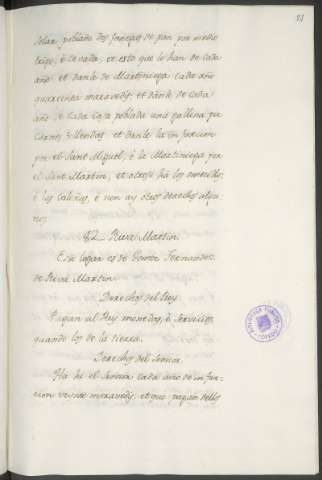 solar poblado dos fanegas de pan por medio
trigo, è cevada, et esto que lo han de cada
año et danle de Martiniega cada año
quarenta maravedis et danle de cada
año, de cada casa poblada una gallina por
et danle la infurcion
por el Sant Miguel, è la Martiniega por
el Sant Martin, et otrosi ha los omecillos,
è las Caloñas, è non ay otros derechos algu-
nos.
82 Riva Martin
Este logar es de Fernandez
de Riva Martin
Derechos del Rey
Pagan al Rey monedas, è servicios,
quando los de la tierra.
Derechos del Señor
Ha hi el Señor cada año de infur-
cion veinte maravedis, et que pagan dellos